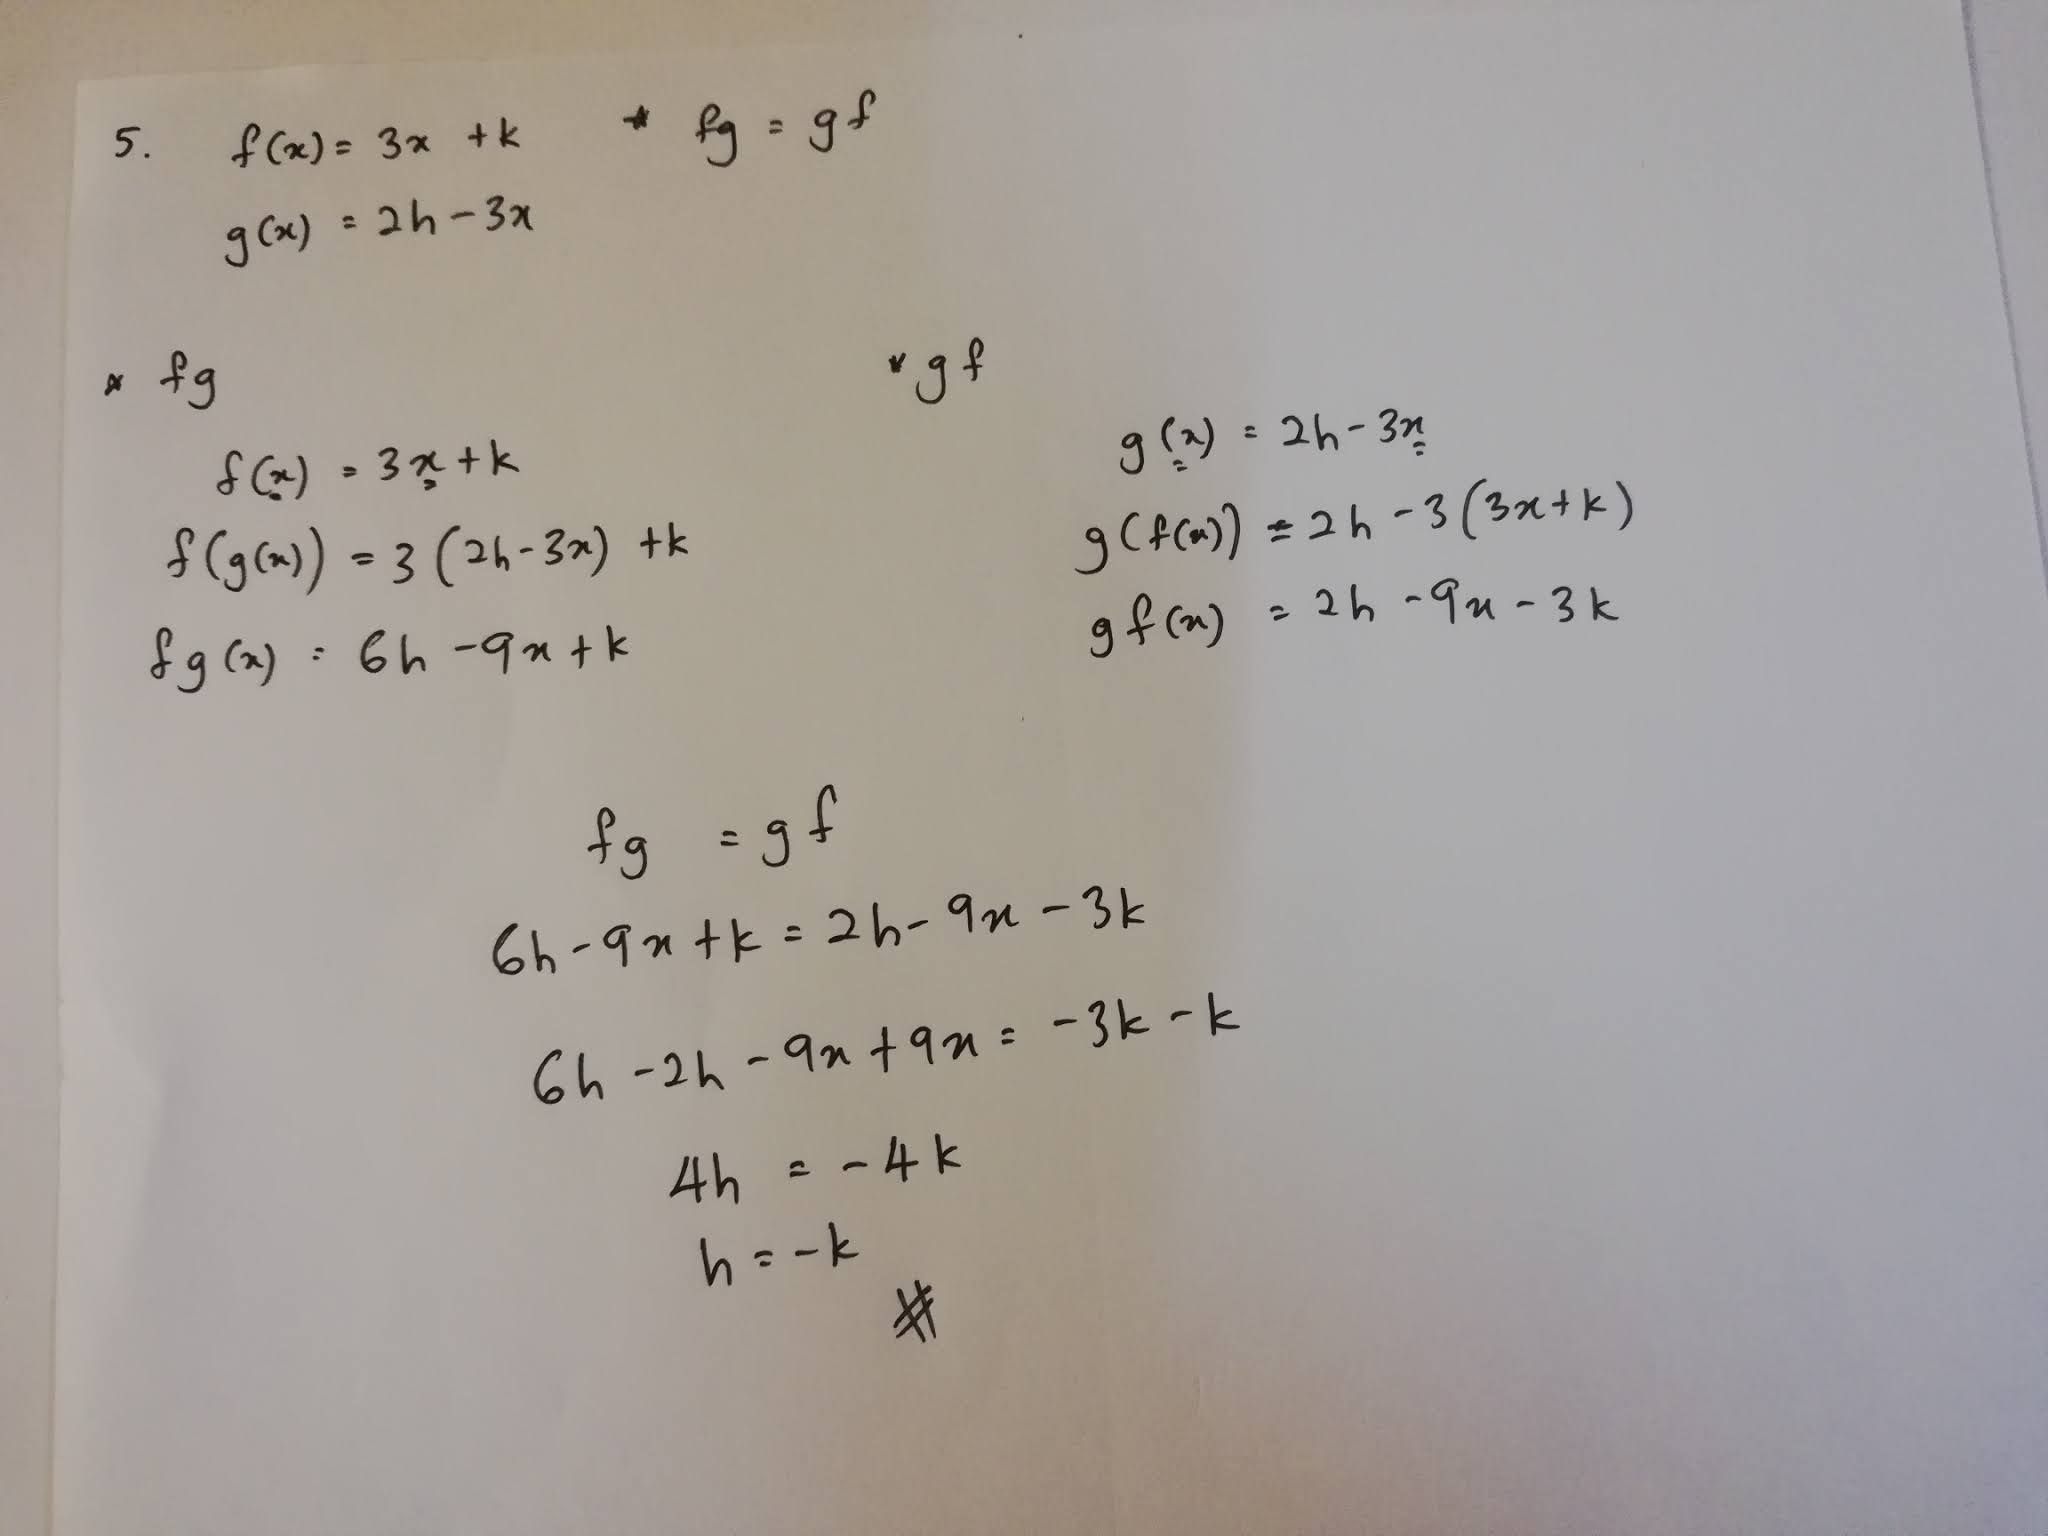 5. f(x) = 3x + k * fg = gf
g(x) = 2h - 3x
* fg
f(x) = 3x + k
f(g(x)) = 3(2h - 3x) + k
fg(x) = 6h - 9x + k
* gf
g(x) = 2h - 3x
g(f(x)) = 2h - 3(3x + k)
gf(x) = 2h - 9x - 3k
fg = gf
6h - 9x + k = 2h - 9x - 3k
6h - 2h - 9x + 9x = -3k - k
4h = -4k
h = -k
#